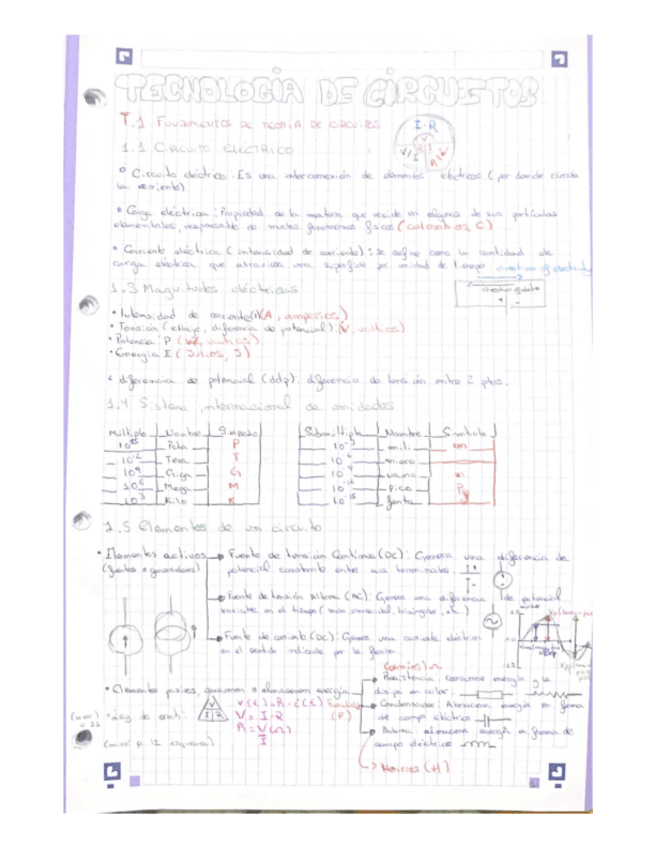 TECNOLOGÍA DE CIRCUITOS
T.1 FUNDAMENTOS DE TEORÍA DE CIRCUITOS
I·R
1.1 CIRCUITO ELÉCTRICO
Circuito eléctrico: Es una interconexión de elementos eléctricos (por donde circula
la corriente)
Carga eléctrica: Propiedad de la materia que reside en algunas de sus partículas
elementales, responsable de muchos fenómenos físicos (culombios, C)
Corriente eléctrica (intensidad de corriente): se define como la cantidad de
carga eléctrica que atraviesa una superficie por unidad de tiempo
1.3 Magnitudes eléctricas
Intensidad de corriente (A, amperios)
Tensión (voltaje, diferencia de potencial): (V, voltios)
Potencia: P
Energía (Julios, J)
diferencia de potencial (ddp): diferencia de tensión entre 2 ptos.
1.4 Sistema internacional de unidades
Múltiplo Nombre Símbolo Submúltiplo Nombre Símbolo
10^15 Peta P 10^-3 mili m
10^12 Tera T 10^-6 micro
10^9 Giga G 10^-9 nano n
10^6 Mega M 10^-12 pico P
10^3 Kilo K 10^-15 femto
1.5 Elementos de un circuito
Elementos activos Fuente de tensión Continua (DC): Genera una diferencia de
(fuentes o generadores) potencial constante entre sus terminales.
Fuente de tensión Alterna (AC): Genera una diferencia de potencial
variable en el tiempo (onda senoidal, triangular, etc.)
Fuente de corriente (DC): Genera una corriente eléctrica
en el sentido indicado por la flecha
(ohmios) Ω
Elementos pasivos, consumen o almacenan energía Resistencia: consume energía y la
disipa en calor.
Ley de ohm: V I R v(t) = R·i(t) Faradios Condensador: Almacena energía en forma
V = I·R (F) de campo eléctrico
R = V/I (Ω) Bobina: almacena energía en forma de
campo eléctrico
Henrios (H)